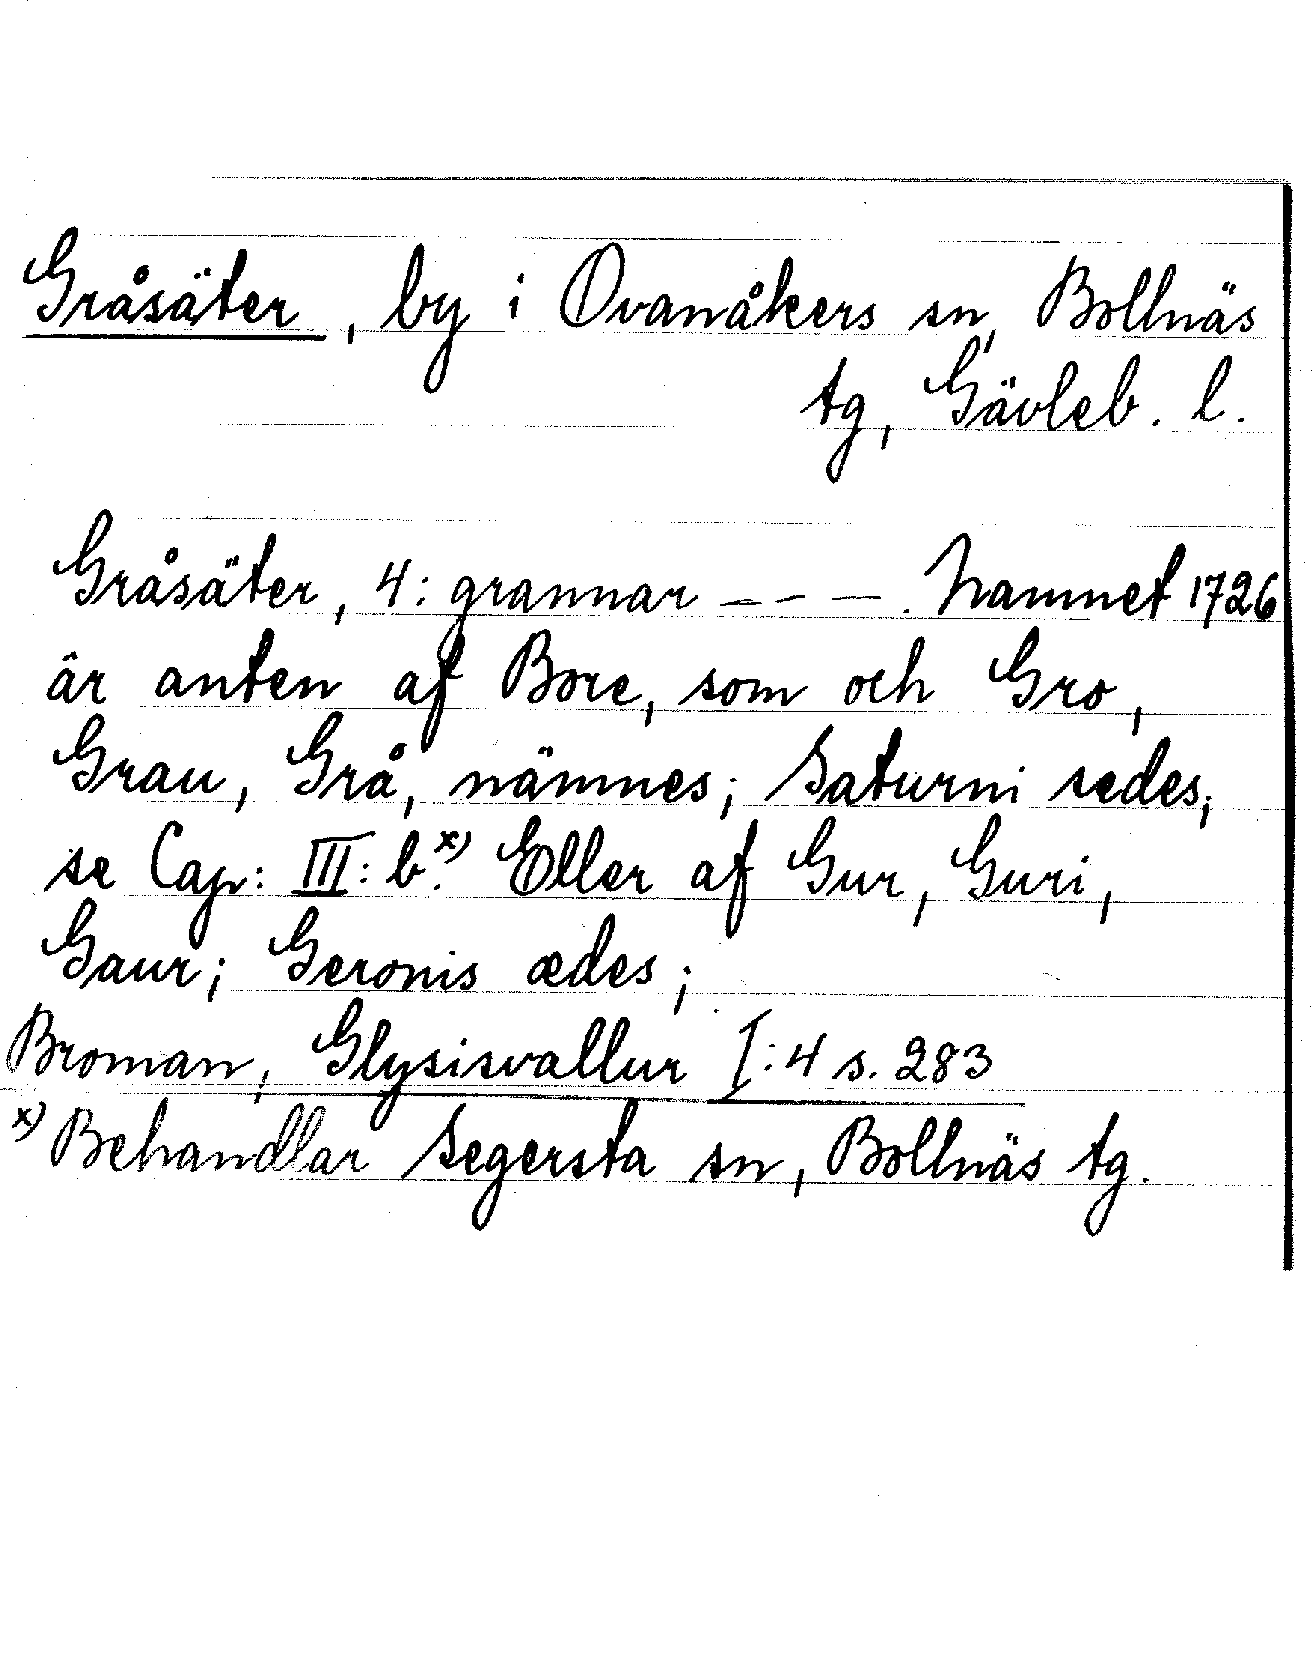 Gråsäter, by i Ovanåkers sn, Bollnäs
tg, Gävleb. l.
Gråsäter, 4: grannar – – – . Namnet 1726
är anten af Bore, som och Gro,
Grau, Grå, nämnes; Saturni sedes;
se Cap: III: b.x) Eller af Gur, Guri,
Gaur; Geronis ædes;
Broman, Glysisvallur I:4 s. 283
x) Behandlar Segersta sn, Bollnäs tg.